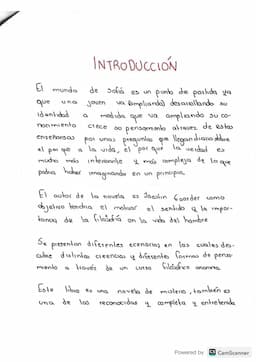 INTRODUCCIÓN
El mundo de Sofia es un punto de partida ya
que una joven va (ampliando) desarrollando su
identidad a medida que va ampliando su co-
nocimiento crece so pensamiento atraves de estas
enseñansas por unas preguntas que llegan diarias sobre
el por qué a la vida, el por que la verdad es
mucho más interesante y más compleja de lo que
podria haber imaginando en un principio.
El autor de la novela es Jostein Gaarder como
objetivo tendria el motivar el sentido y la impor-
tancia de la filosofia en la vida del hombre
Se presentan diferentes escenarios en los cuales des-
cubre distintas creencias y diferentes formas de pensa-
miento a través de un curso filosofico anonimo.
Este libro es una novela de misterio, también es
una de las reconocidas y completa y entretenida
Powered by CS CamScanner